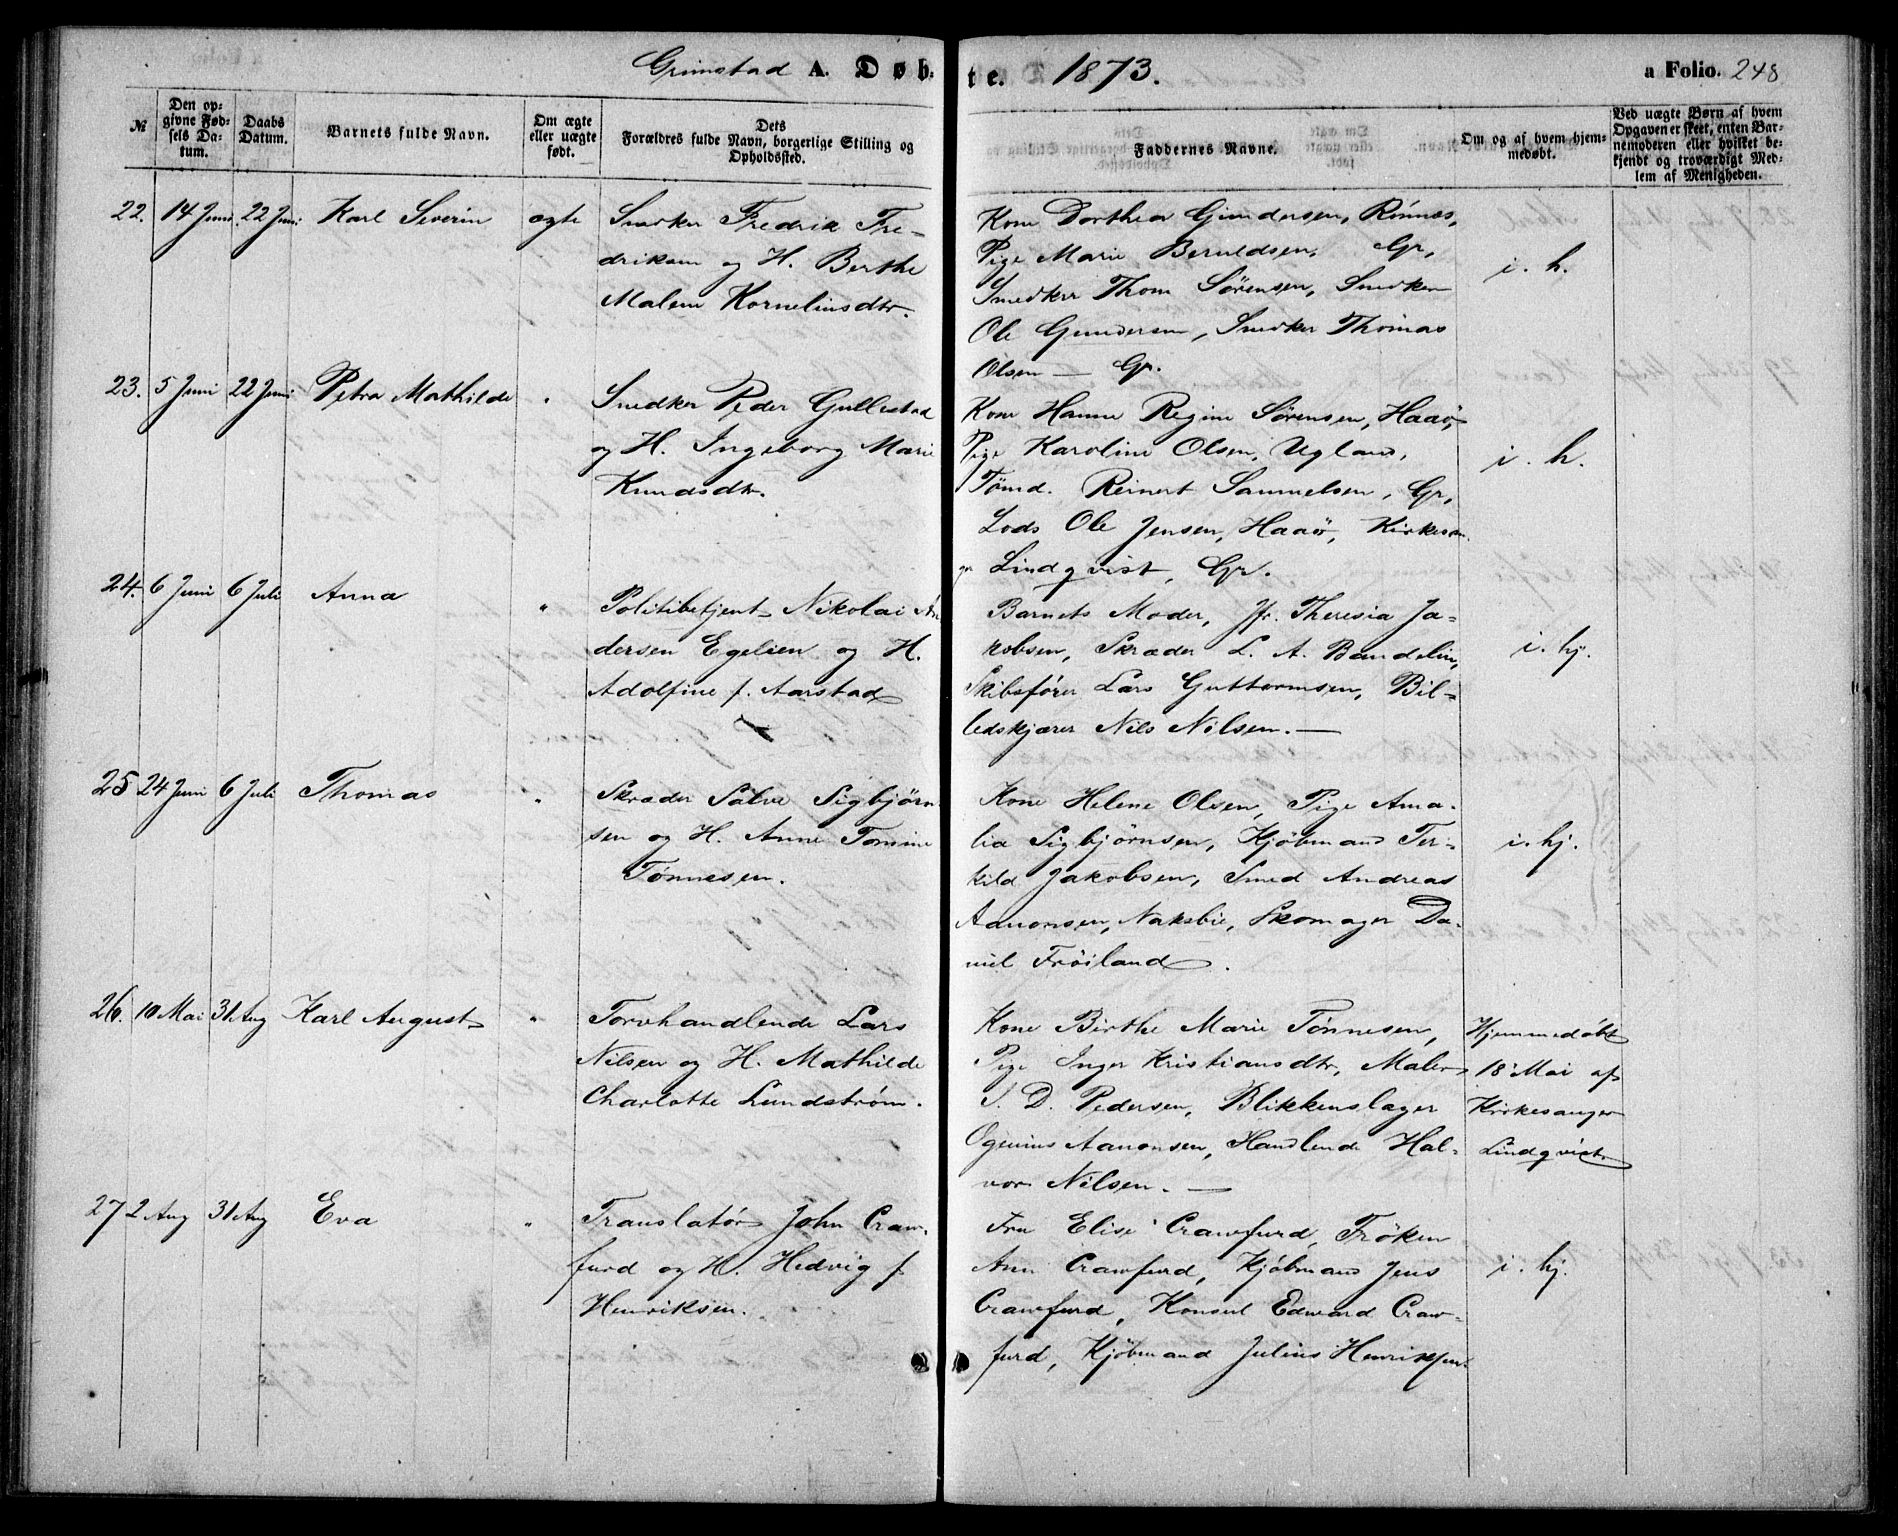 Grimstad A. Døb-
te. 1873.
a Folio. 248
№
Den op-
givne Fød-
sels Da-
tum.
Daabs
Datum.
Barnets fulde Navn.
Om ægte
eller uægte
født.
Dets
Forældres fulde Navn, borgerlige Stilling og
Opholdssted.
Faddernes Navne.
Om og af hvem hjem-
medøbt.
Ved uægte Børn af hvem
Opgaven er skeet, enten Bar-
nemoderen eller hvilket be-
kjendt og troværdigt Med-
lem af Menigheden.
22. 14 Juni 22 Juni Karl Severin ægte
Snedker Fredrik Fre-
driksen og H. Berthe
Malene Korneliusdtr.
Kone Dorthea Gundersen, Rönnes,
Pige Marie Beruldsen, Gr,
Snedker Thom Sörensen, Snedker
Ole Gundersen, Snedker Thomas
Olsen — Gr.
i. h.
23. 5 Juni 22 Juni Petra Mathilde "
Snedker Peder Gullestad
og H. Ingeborg Marie
Knudsdtr.
Kone Hanne Regine Sörensen, Haaö,
Pige Karoline Olsen, Ugland,
Tömd. Reinert Samuelsen, Gr,
Lods Ole Jensen, Haaö, Kirkesan
ger Lindqvist, Gr.
i. h.
24. 6 Juni 6 Juli Anna "
Politibetjent Nikolai An
dersen Egelien og H.
Adolfine f. Aarstad
Barnets Moder, Jfr. Theresia Ja-
kobsen, Skræder L. A. Bandelin,
Skibsförer Lars Guttormsen, Bil-
ledskjærer Nils Nilsen. —
i. hj.
25 24 Juni 6 Juli Thomas "
Skræder Salve Sigbjörn
sen og H. Anne Tomine
Tönnesen.
Kone Helene Olsen, Pige Ama-
lia Sigbjörnsen, Kjöbmand Ter-
kild Jakobsen, Smed Andreas
Aanonsen, Naksbie, Skomager Da-
niel Fröiland.
i. hj.
26. 10 Mai 31 Aug Karl August "
Torvhandlende Lars
Nilsen og H. Mathilde
Charlotte Lundström.
Kone Birthe Marie Tönnesen,
Pige Inger Kristiansdtr, Maler
J. D. Pedersen, Blikkenslager
Ogenius Aanonsen, Handlende Hal-
vor Nilsen. —
Hjemmedöbt
18 Mai af
Kirkesanger
Lindqvist
27 2 Aug 31 Aug Eva "
Translatör John Craw-
furd og H. Hedvig f
Henriksen.
Fru Elise Crawfurd, Fröken
Ann Crawfurd, Kjöbmand Jens
Crawfurd, Konsul Edward Craw-
furd, Kjöbmand Julius Henriksen
i. hj.